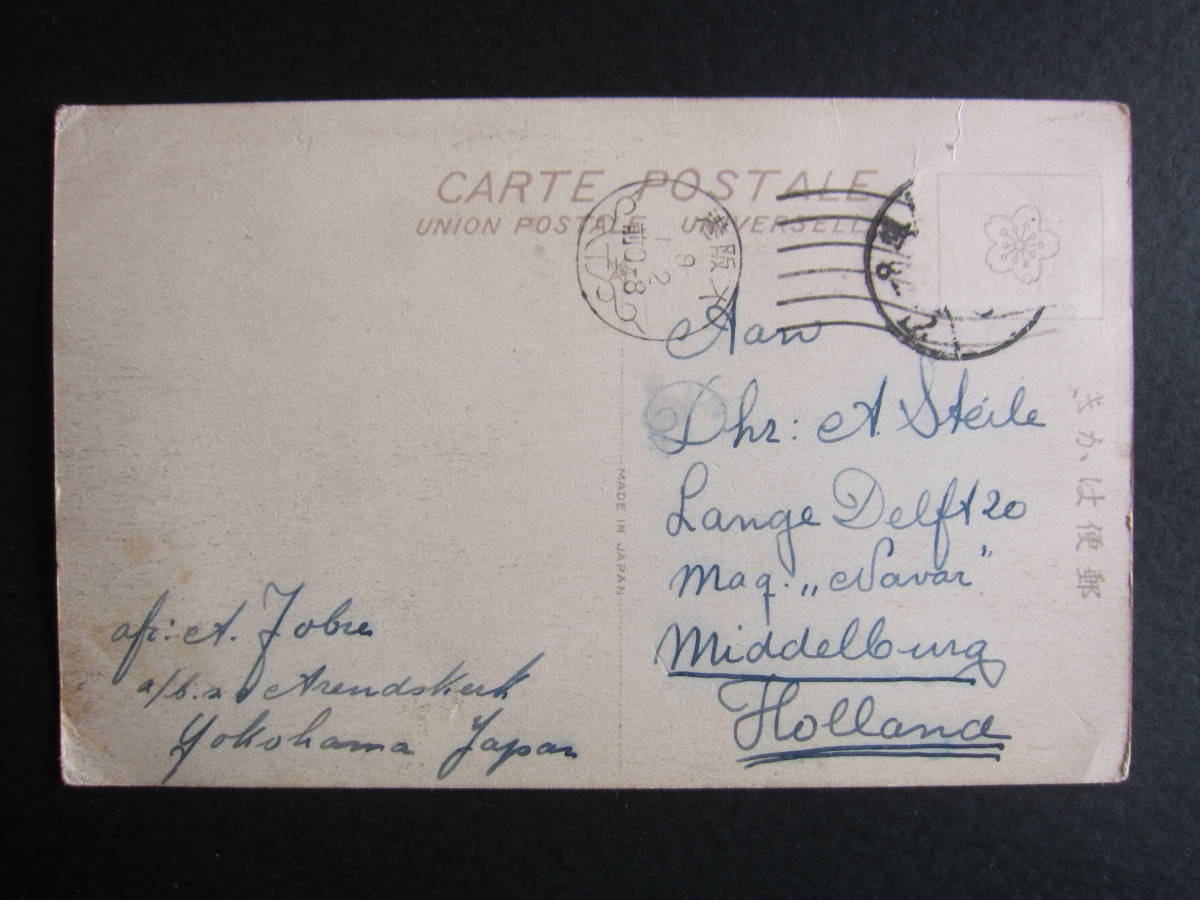 CARTE POSTALE
UNION POSTALE UNIVERSELLE
大阪港
9
1 2
前0-8
きかは便郵
MADE IN JAPAN
Aan
Dhr: A. Steile
Lange Delft 20
Maq. „Navar”
Middelburg
Holland
afz: A.
a/b. s. Arendskerk
Yokohama Japan